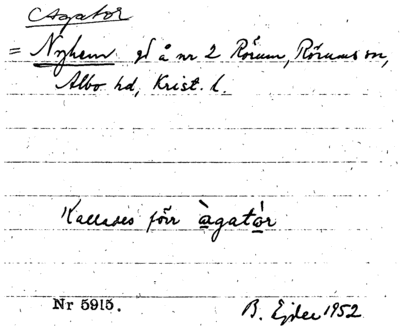 Agator
= Nyhem gd å nr 2 Rörum, Rörums sn,
Albo hd, Krist. l.
Kallades förr àgatór
Nr 5915.
B. Ejder 1952